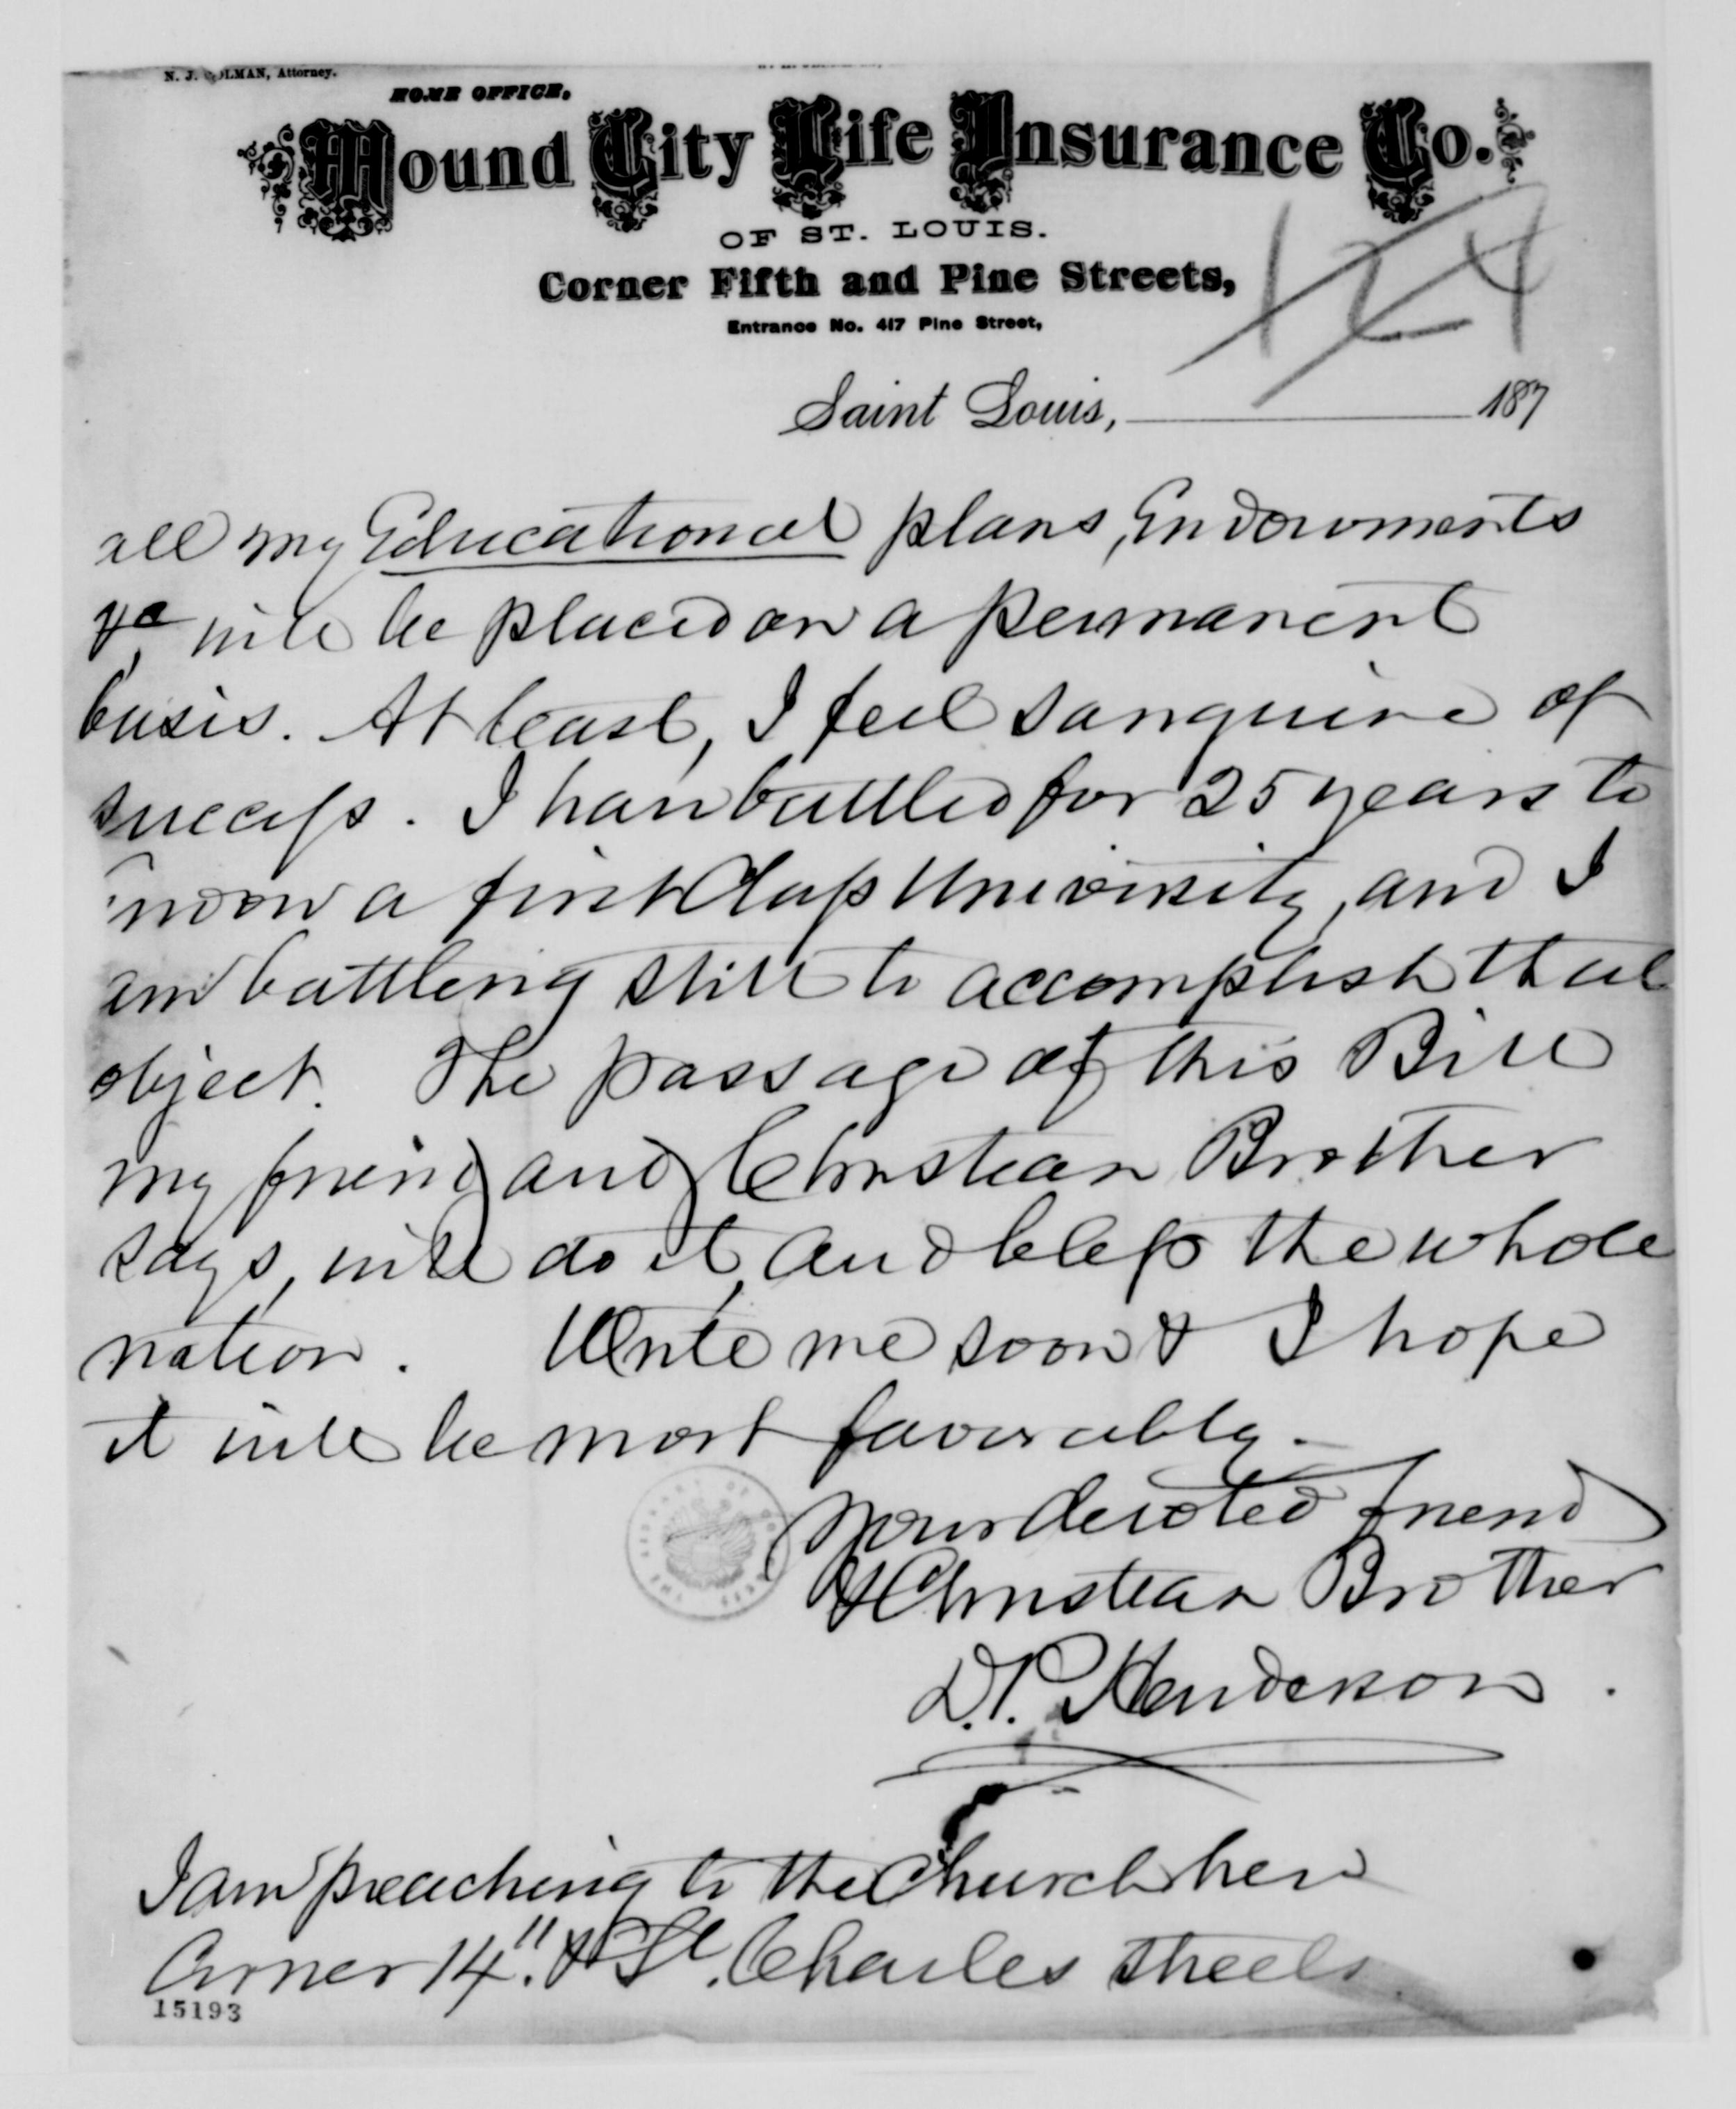 N. J. COLMAN, Attorney.
HOME OFFICE.
Mound City Life Insurance Co.
OF ST. LOUIS.
Corner Fifth and Pine Streets,
Entrance No. 417 Pine Street,
124
Saint Louis, 187
all my Educational plans, Endowments
&c, will be placed on a permanent
basis. At least, I feel sanguine of
success. I have battled for 25 years to
a first Class University, and I
am battling still to accomplish that
object. The passage of this Bill
my friend and Christian Brother
says, will do it, and bless the whole
nation. Write me soon & I hope
it will be most favorably.
Your devoted friend
& Christian Brother
D.P. Henderson.
I am preaching to the Church here
Corner 14" & St. Charles Streets
15193